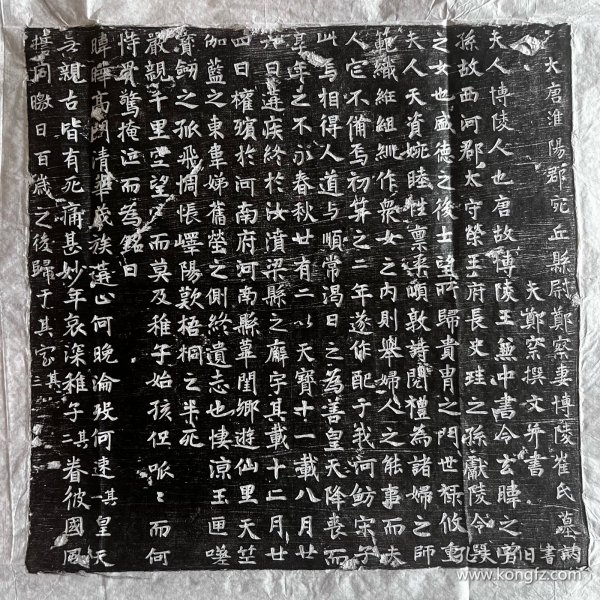 大唐淮陽郡宛丘縣尉鄭宻妻博陵崔氏墓
夫鄭宻撰文并書
夫人博陵人也唐故博陵王兼中書令玄暐之
孫故西河郡太守榮王府長史珪之孫獻陵令
之女也盛德之後士望所歸貴胄之門世祿攸重
夫人天資姚睦性稟柔頤敦詩閱禮為諸婦之師
範織維組紃作衆女之内則舉婦人之能事而夫
人它不備焉初笄之二年遂作配于我何魴宋子
此焉相得人道与順常渴日之為善皇天降喪而
享年之不永春秋廿有二以天寶十一載八月廿
日遘疾終於汝濆梁縣之廨宇其載十二月廿
四日權殯於河南府河南縣蕇閏鄉遊仙里天竺
伽藍之東韋娣舊塋之側終遺志也悽涼玉匣嗟
寳劒之孤飛惆悵嶧陽歎梧桐之半死
嚴親千里空望而莫及稚子始孩但哌哌而何
恃骨驚掩泣而為銘曰
暐曄高門清華茂族選何晚淪歿何速其一皇天
無親古皆有死痛甚妙年哀深稚子其二眷彼國風
攜同皦日百歲之後歸于其室其三
孔夫子舊書網
www.kongfz.com